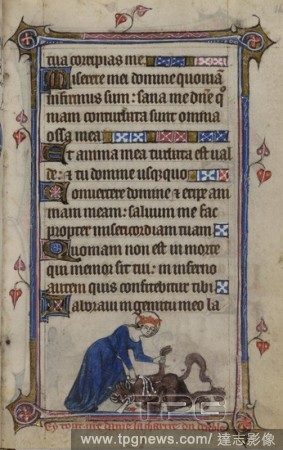 tua corripias me
Miserere mei domine quoniā
infirmus sum: sana me dñe q̃
niam conturbata sunt omnia
ossa mea
Et anima mea turbata est ual
de: & tu domine usqzquo
Conuertere domine & eripe ani
mam meam: saluum me fac
propter misericordiam tuam
Quoniam non est in morte
qui memor sit tui: in inferno
autem quis confitebitur tibi
Laboraui in gemitu meo la
TPG
www.tpgnews.com/達志影像